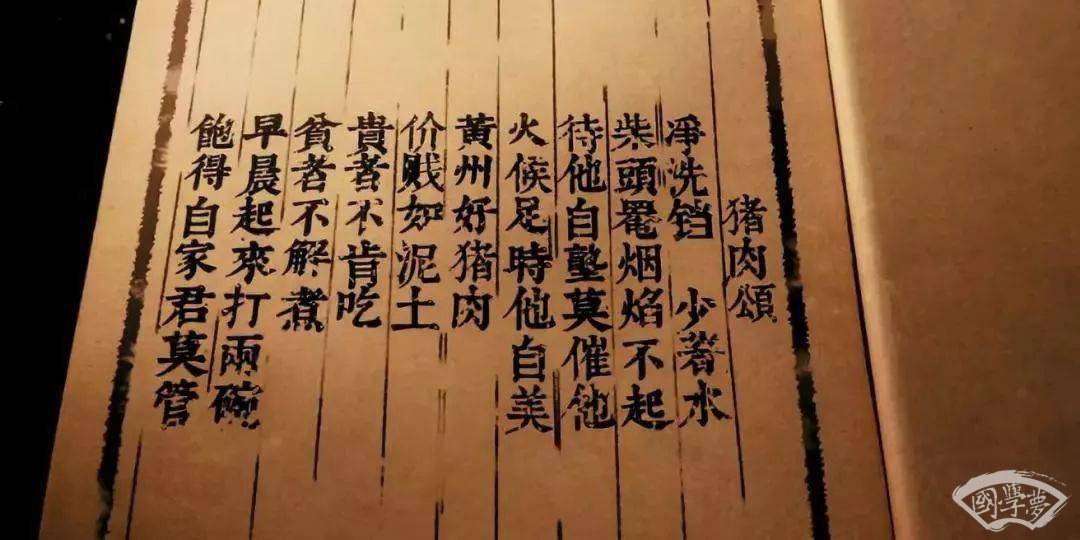 猪肉頌
凈洗铛 少著水
柴頭罨烟焰不起
待他自塾莫催他
火候足時他自美
黃州好猪肉
价贱如泥土
貴者不肯吃
貧者不解煮
早晨起來打兩碗
飽得自家君莫管
國學夢